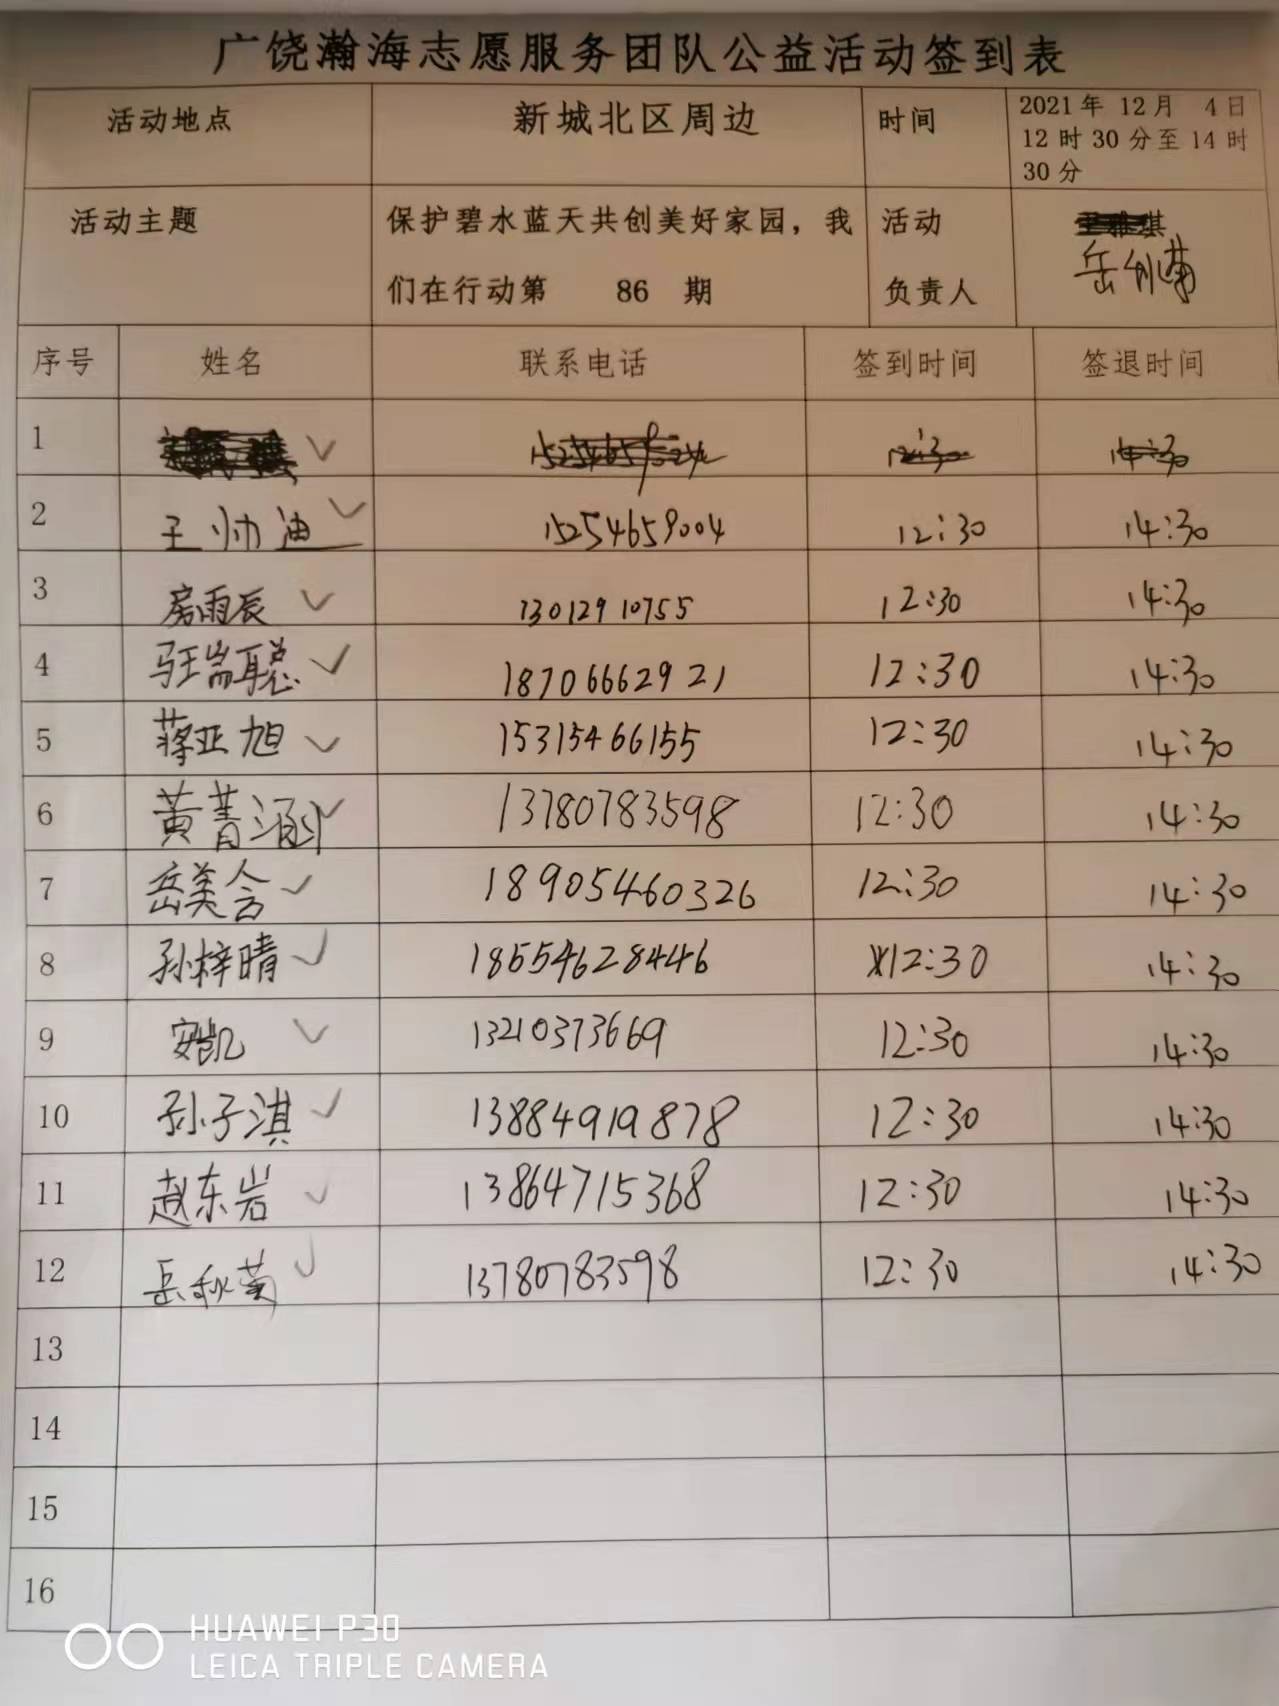 广饶瀚海志愿服务团队公益活动签到表
活动地点 新城北区周边 时间 2021年 12月 4日
12时30分至14时
30分
活动主题 保护碧水蓝天共创美好家园，我
们在行动第 86 期
活动
负责人
序号 姓名 联系电话 签到时间 签退时间
1
2 王帅迪 15254659004 12:30 14:30
3 房雨辰 13012910755 12:30 14:30
4 瑞聪 18706662921 12:30 14:30
5 蒋亚旭 15315466155 12:30 14:30
6 黄菁涵 13780783598 12:30 14:30
7 岳美含 18905460326 12:30 14:30
8 孙梓晴 18654628446 12:30 14:30
9 安凯 13210373669 12:30 14:30
10 孙子淇 13884919878 12:30 14:30
11 赵东岩 13864715368 12:30 14:30
12 岳秋菊 13780783598 12:30 14:30
13
14
15
16
HUAWEI P30
LEICA TRIPLE CAMERA